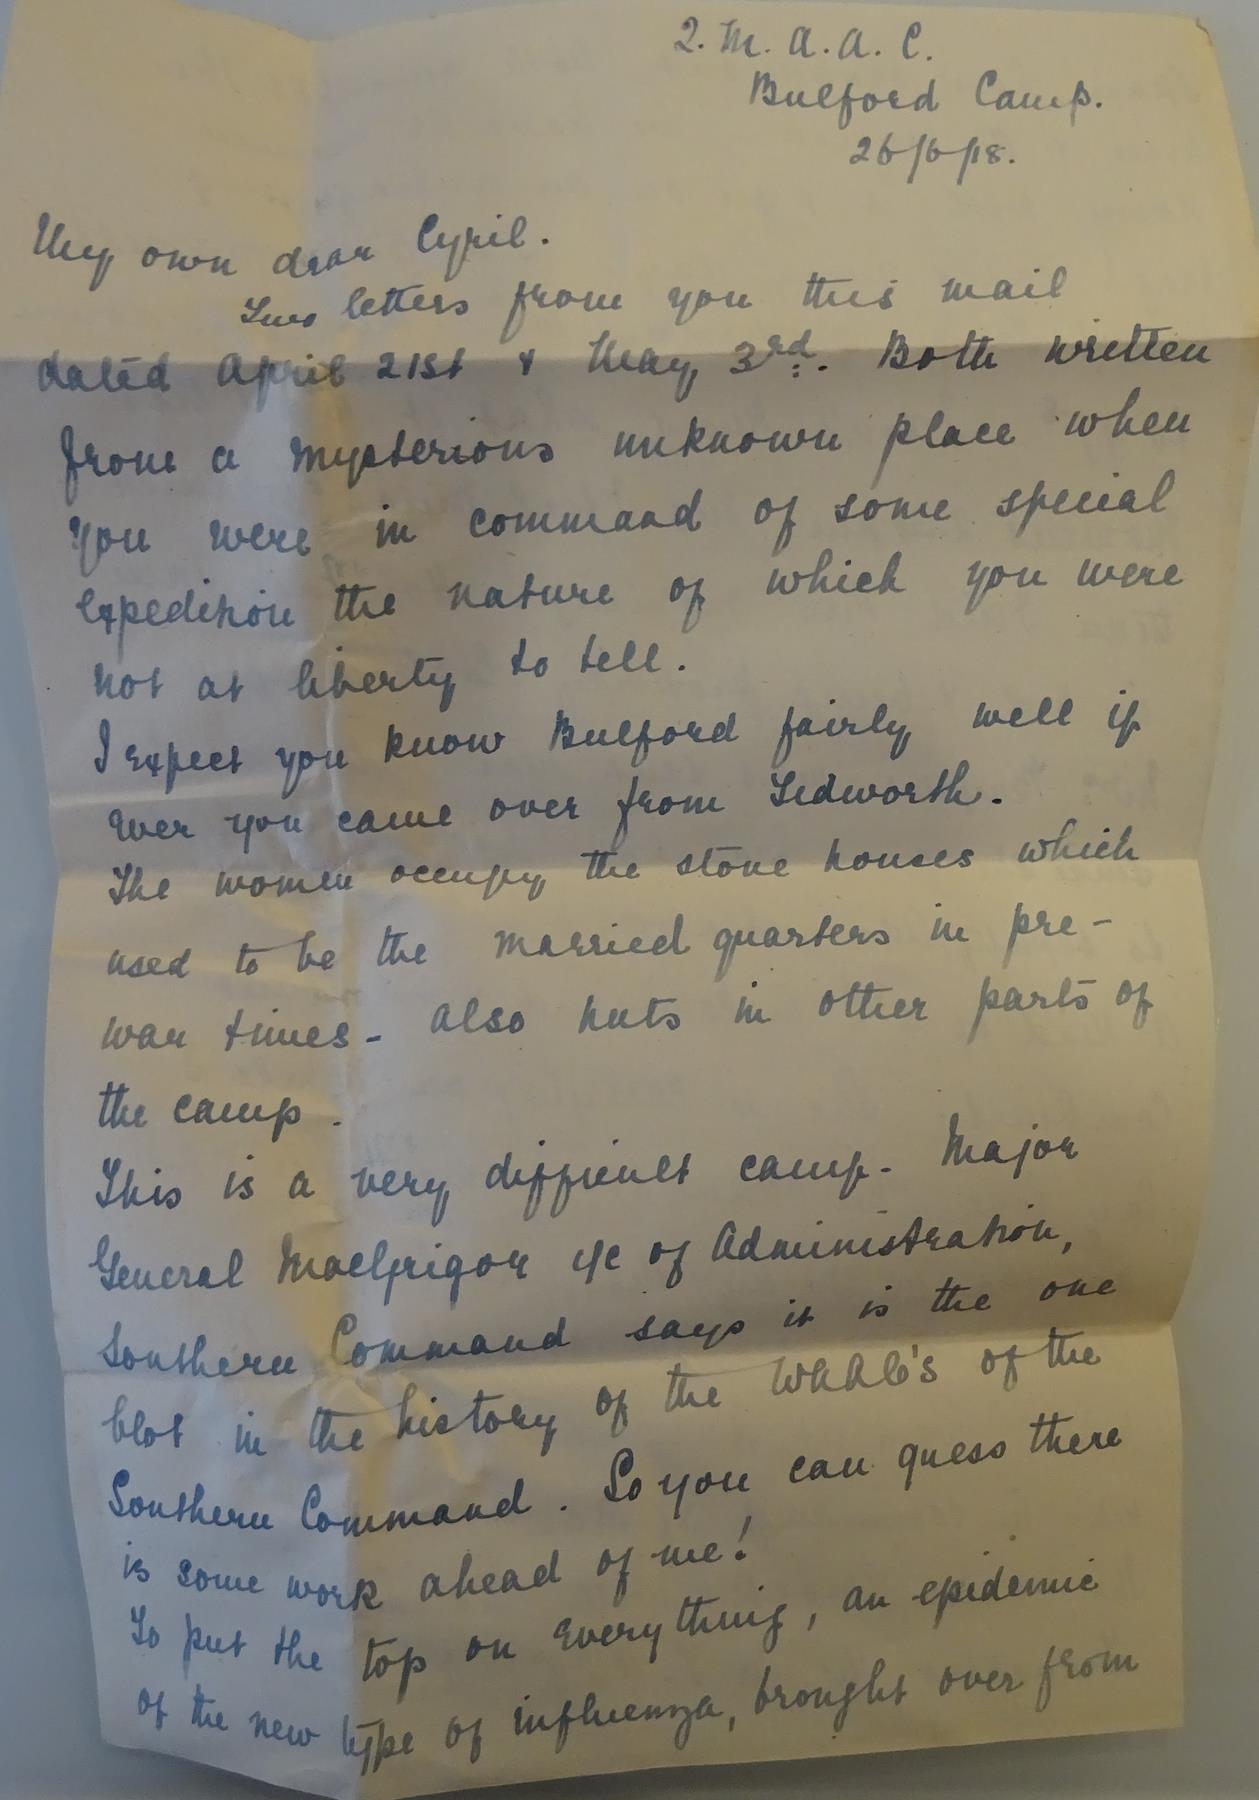 2. M. A. A. C.
Bulford Camp.
26/6/18.
My own dear Cyril.
Two letters from you this mail
dated April 21st & May 3rd. Both written
from a mysterious unknown place when
you were in command of some special
expedition the nature of which you were
not at liberty to tell.
I expect you know Bulford fairly well if
ever you came over from Tedworth.
The women occupy the stone houses which
used to be the married quarters in pre-
war times - also huts in other parts of
the camp.
This is a very difficult camp - Major
General MacGrigor i/c of Administration,
Southern Command says it is the one
blot in the history of the of the
Southern Command. So you can guess there
is some work ahead of me!
To put the top on everything, an epidemic
of the new type of influenza, brought over from